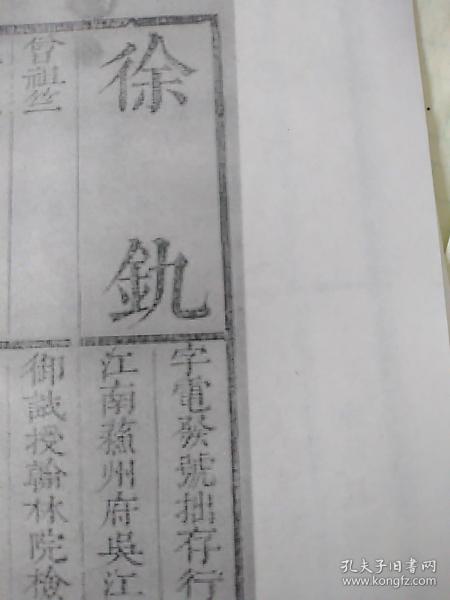 徐釚
字電發號拙存行
江南蘇州府吳江
御試授翰林院檢
曾祖丝
孔夫子旧书网
www.kongfz.com